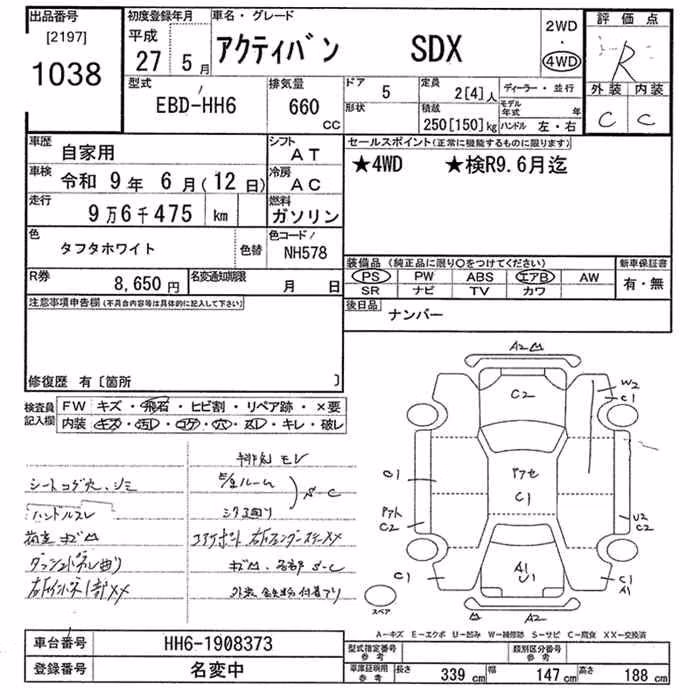 出品番号
[2197]
1038
初度登録年月
平成
27 5月
車名・グレード
アクティバン SDX
2WD
・
4WD
評価点
R
外装 内装
C C
型式
EBD-HH6
排気量
660
CC
ドア
5
形状
定員
2[4]人
積載
250[150]kg
ディーラー・並行
モデル年式 年
ハンドル 左・右
車歴
自家用
シフト
AT
車検
令和 9年 6月(12日)
冷房
AC
走行
9万6千475 km
燃料
ガソリン
色
タフタホワイト
色替
色コード
NH578
R券
8,650円
名変通知期限
月 日
セールスポイント(正常に機能するものに限ります)
★4WD ★検R9.6月迄
装備品(純正品に限り○をつけてください)
PS PW ABS エアB AW
SR ナビ TV カワ
新車保証書
有・無
後日品
ナンバー
注意事項申告欄(不具合内容等は具体的に記入して下さい)
修復歴 有〔箇所 〕
検査員
記入欄
FW キズ・飛石・ヒビ割・リペア跡・×要
内装 キズ・汚レ・コゲ・穴・スレ・キレ・破レ
シートコゲ穴、シミ
ハンドルスレ
A2
C2
W2
C1
C1
アトC2
アセ
C1
U2
C2
C1
A1
U1
C1
A1
A2
スペア
A-キズ E-エクボ U-凹み W-補修跡 S-サビ C-腐食 XX-交換済
車台番号
HH6-1908373
登録番号
名変中
型式指定番号
参考
類別区分番号
参考
車庫証明用
参考
長さ 339cm
幅 147cm
高さ 188cm